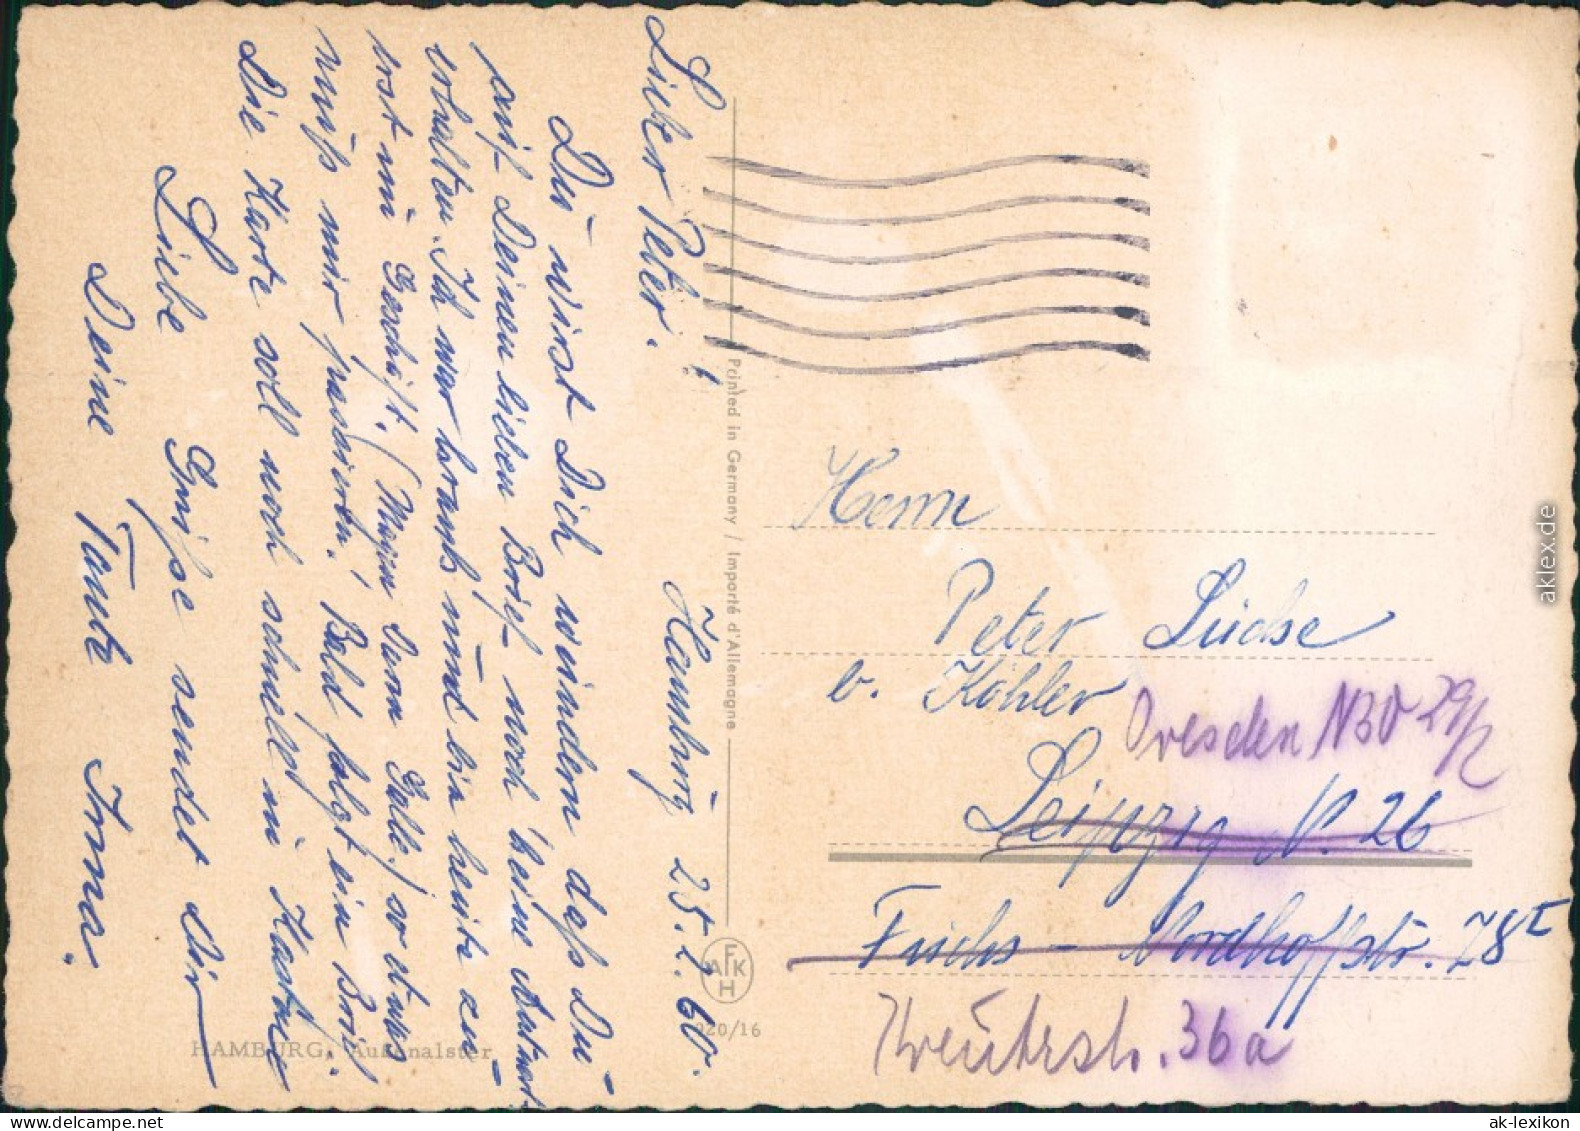 Lieber Peter!
Hamburg 25.2.60.
Du wirst Dich wundern daß Du
auf Deinen lieben Brief noch keine Antwort
erhalten. Ich war krank und bin heute zu-
erst im Geschäft. (Magen Darm Galle) so etwas
muß mir passieren! Bald folgt ein Brief.
Die Karte soll noch schnell in Kasten
Liebe Grüße sendet Dir
Deine Tante Irma.
Printed in Germany / Importé d'Allemagne
AFKH
920/16
HAMBURG, Außenalster
Herrn
Peter Luchse
b. Köhler
Dresden N30
Leipzig N. 26
Fuchs - Nordhoffstr. 28 I
36a
aklex.de
ak-lexikon